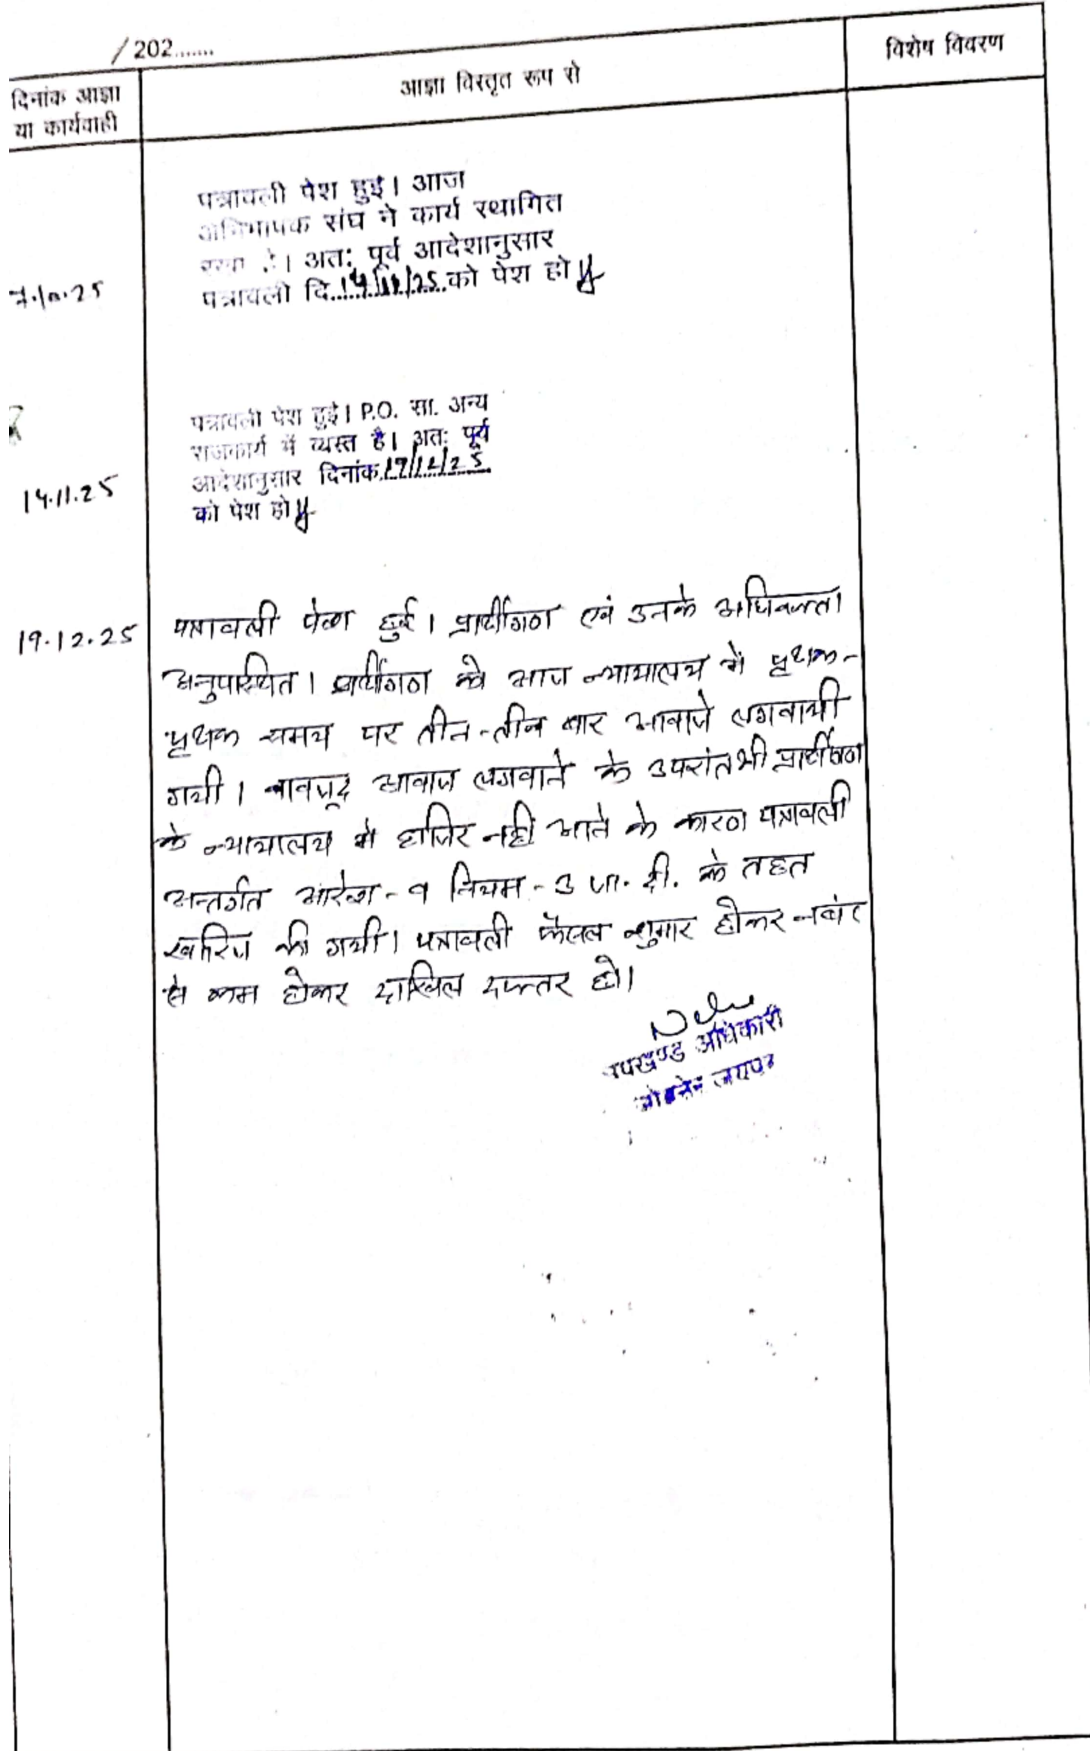 /202.......
दिनांक आज्ञा
या कार्यवाही
आज्ञा विस्तृत रूप से
विशेष विवरण
7.10.25
पत्रावली पेश हुई। आज
अभिभाषक संघ ने कार्य स्थगित
रखा है। अतः पूर्व आदेशानुसार
पत्रावली दि.14/11/25.को पेश हो
14.11.25
पत्रावली पेश हुई। P.O. सा. अन्य
राजकार्य में व्यस्त है। अतः पूर्व
आदेशानुसार दिनांक.19/12/25
को पेश हो
19.12.25
पत्रावली पेश हुई। प्रार्थीगण एवं उनके अधिवक्ता
अनुपस्थित। प्रार्थीगण को आज न्यायालय में पृथक-
पृथक समय पर तीन-तीन बार आवाजे लगवायी
गयी। बावजूद आवाज लगवाने के उपरांत भी प्रार्थीगण
के न्यायालय में हाजिर नही आने के कारण पत्रावली
अन्तर्गत आदेश-9 नियम-3 जा.दी. के तहत
खारिज की गयी। पत्रावली फैसल शुमार होकर नबंर
से कम होकर दाखिल दफ्तर हो।
उपखण्ड अधिकारी
जोबनेर जयपुर